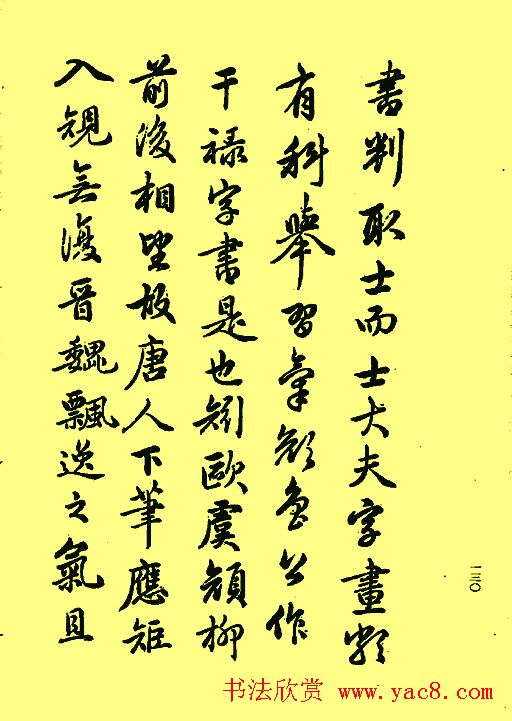 書判取士而士大夫字畫類
有科舉習氣顏魯公作
干祿字書是也矧歐虞顏柳
前後相望故唐人下筆應矩
入規無復晉魏飄逸之氣且
一三〇
书法欣赏 www.yac8.com